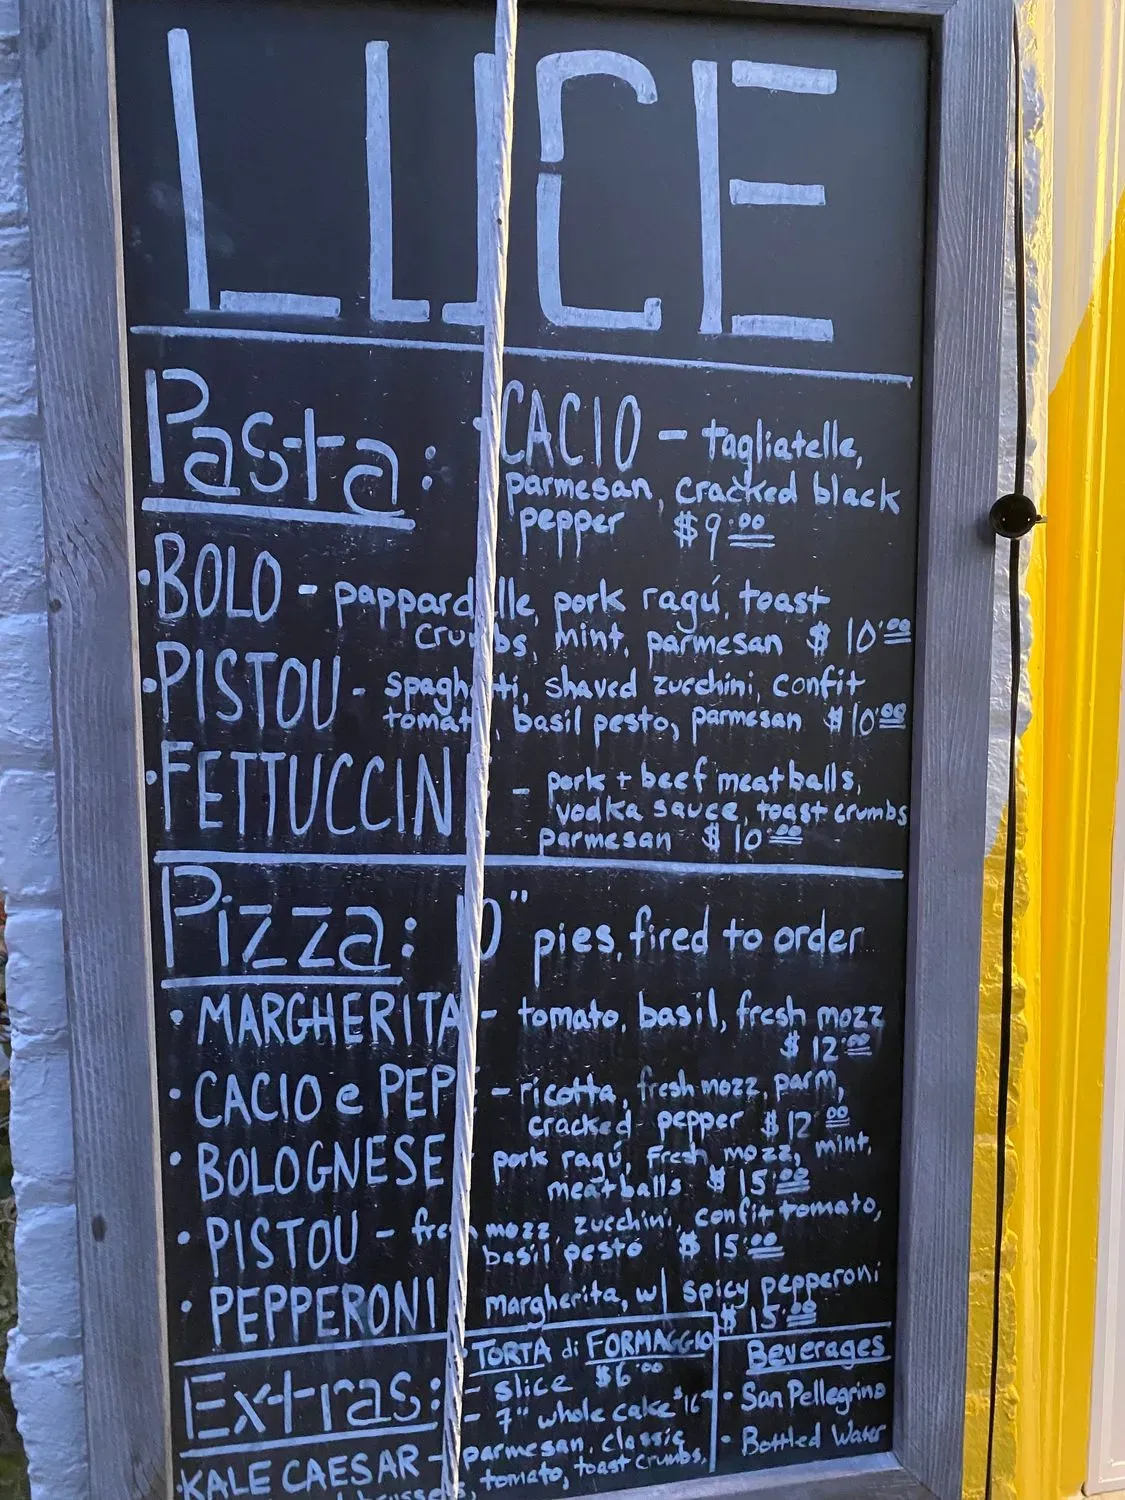 LUCE
Pasta:
CACIO - tagliatelle,
parmesan, cracked black
pepper $9.00
• BOLO - pappardelle, pork ragú, toast
crumbs, mint, parmesan $10.00
• PISTOU - spaghetti, shaved zucchini, confit
tomato, basil pesto, parmesan $10.00
• FETTUCCIN - pork + beef meatballs,
vodka sauce, toast crumbs
parmesan $10.00
Pizza: 10" pies, fired to order
• MARGHERITA - tomato, basil, fresh mozz
$12.00
• CACIO e PEPE - ricotta, fresh mozz, parm,
cracked pepper $12.00
• BOLOGNESE pork ragú, fresh mozz, mint,
meatballs $15.00
• PISTOU - fresh mozz, zucchini, confit tomato,
basil pesto $15.00
• PEPPERONI margherita, w/ spicy pepperoni
$15.00
Extras:
• TORTA di FORMAGGIO
- slice $6.00
- 7" whole cake $16
• KALE CAESAR - parmesan, classic
tomato, toast crumbs,
Beverages
• San Pellegrino
• Bottled Water